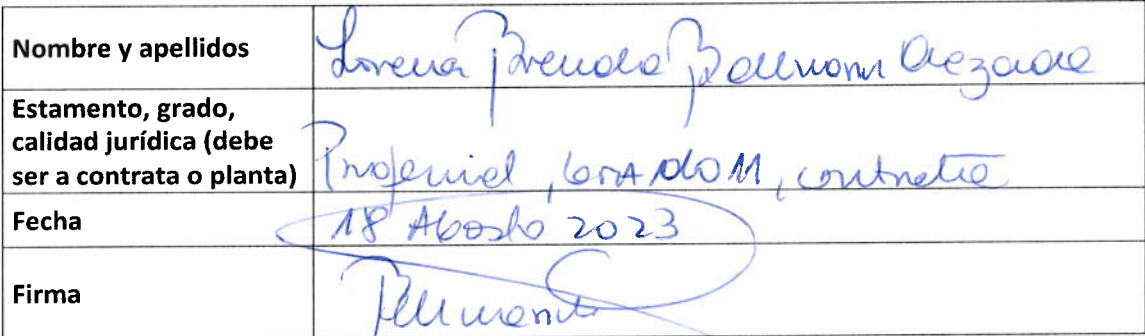 Nombre y apellidos Lorena Brenda Bellmann
Estamento, grado,
calidad jurídica (debe
ser a contrata o planta) Profesional, GRADO 11, contrata
Fecha 18 Agosto 2023
Firma